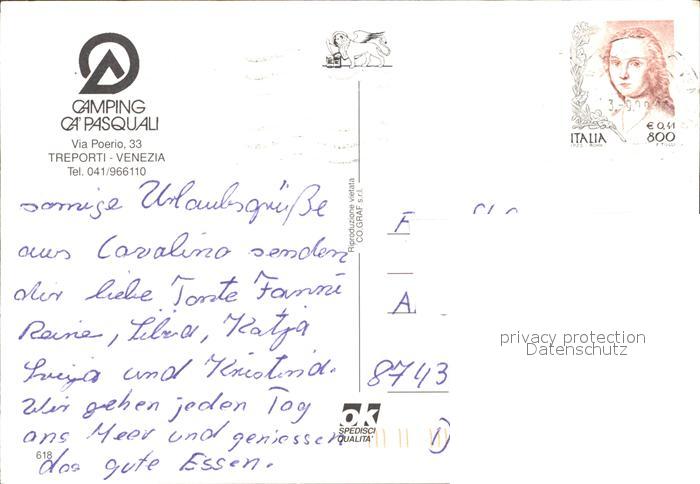 CAMPING
CA' PASQUALI
Via Poerio, 33
TREPORTI - VENEZIA
Tel. 041/966110
sonnige Urlaubsgrüße
aus Cavalino senden
dir liebe Tante Fanni
Katja
und
Wir gehen jeden Tag
ans Meer und geniessen
das gute Essen.
618
Riproduzione vietata
CO.GRAF s.r.l.
ITALIA
€ 0,41
800
F
A.
8743
privacy protection
Datenschutz
ok
SPEDISCI
QUALITA'